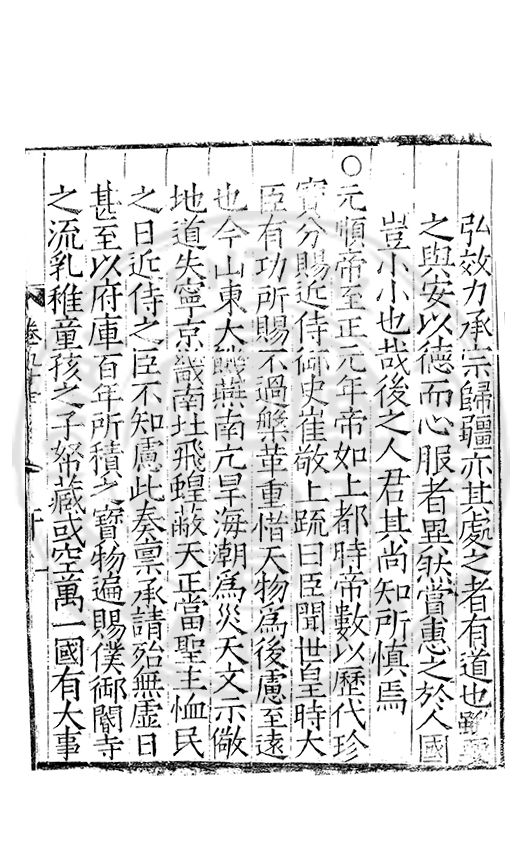 弘效力承宗歸疆亦其處之者有道也雖
之與安以德而心服者異然當惠之於人國
豈小小也哉後之人君其尚知所慎焉
○元順帝至正元年帝如上都時帝數以歷代珍
寶分賜近侍御史崔敬上疏曰臣聞世皇時大
臣有功所賜不過槃革重惜天物為後慮至遠
也今山東大饑燕南亢旱海潮為災天文示儆
地道失寧京畿南北飛蝗蔽天正當聖主恤民
之日近侍之臣不知慮此奏禀承請殆無虛日
甚至以府庫百年所積之寶物遍賜僕御閽寺
之流乳稚童孩之子帑藏或空萬一國有大事
卷九十